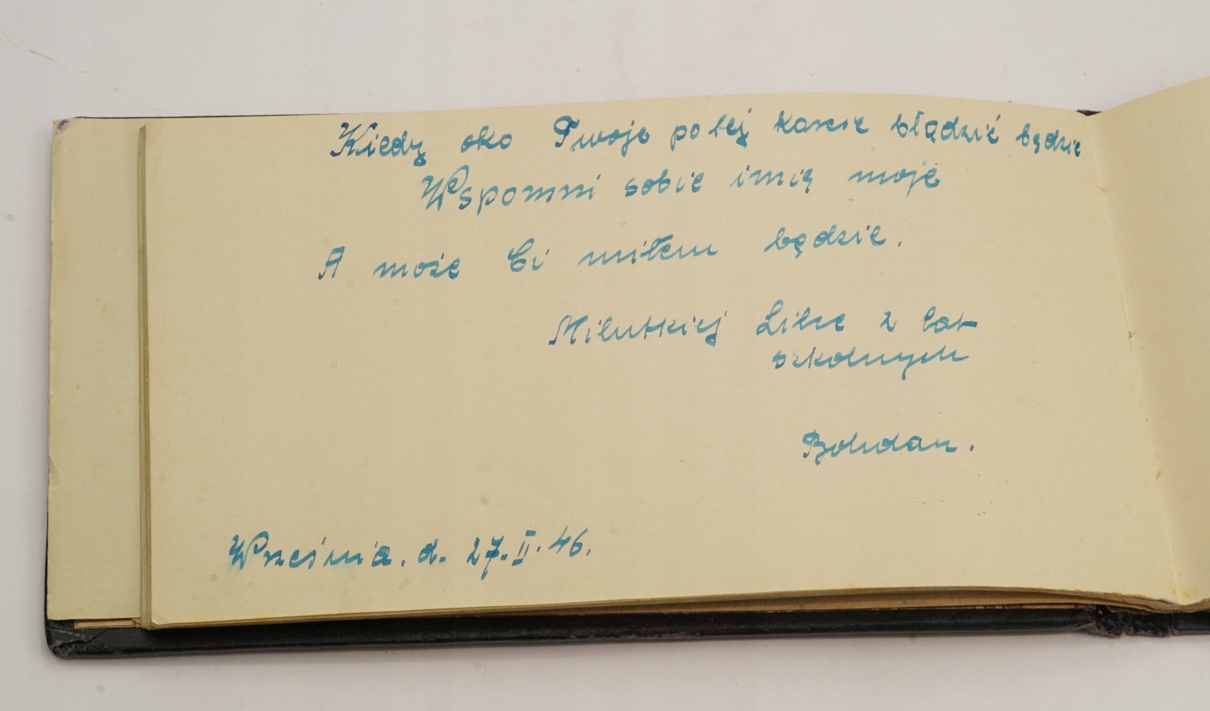 Kiedy oko Twoje po tej karcie błądzić będzie
Wspomni sobie imię moje
A może Ci miłem będzie.
Milutkiej Lilce z lat
szkolnych
Bohdan.
Września. d. 27.II.46.